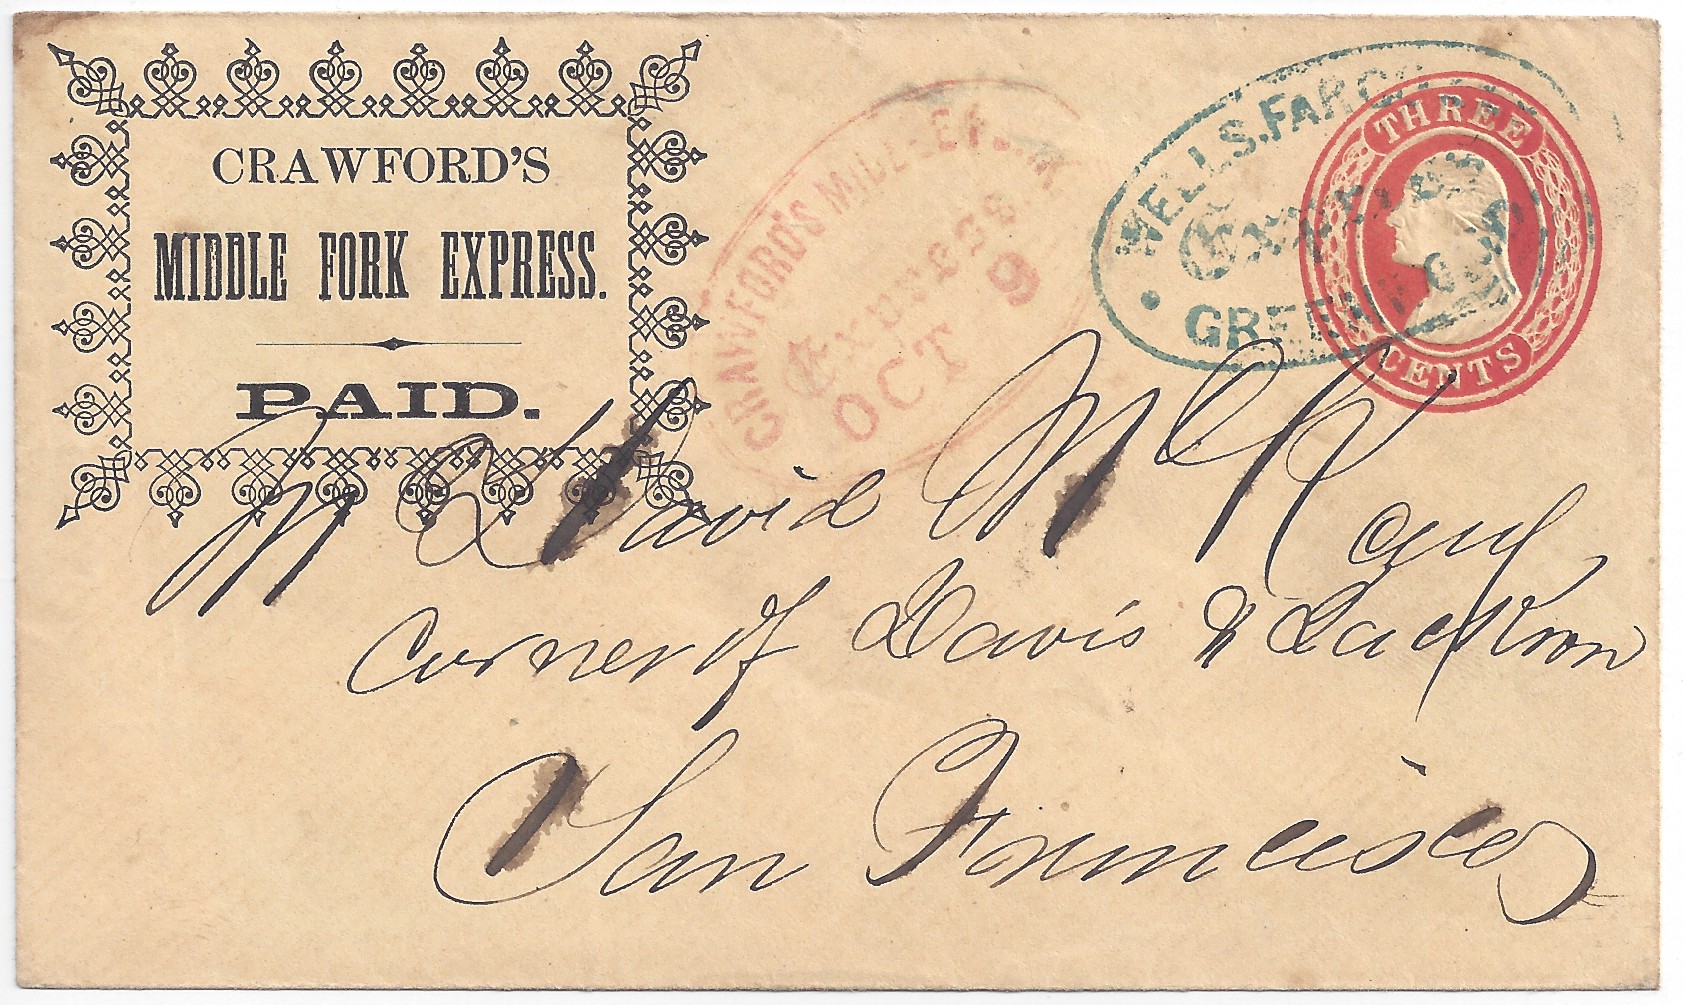 CRAWFORD'S
MIDDLE FORK EXPRESS.
PAID.
CRAWFORD'S MIDDLE
Express
OCT 9
WELLS, FARGO
Express
GREENWOOD
THREE
CENTS
Mr David McKay
Corner of Davis & Jackson
San Francisco